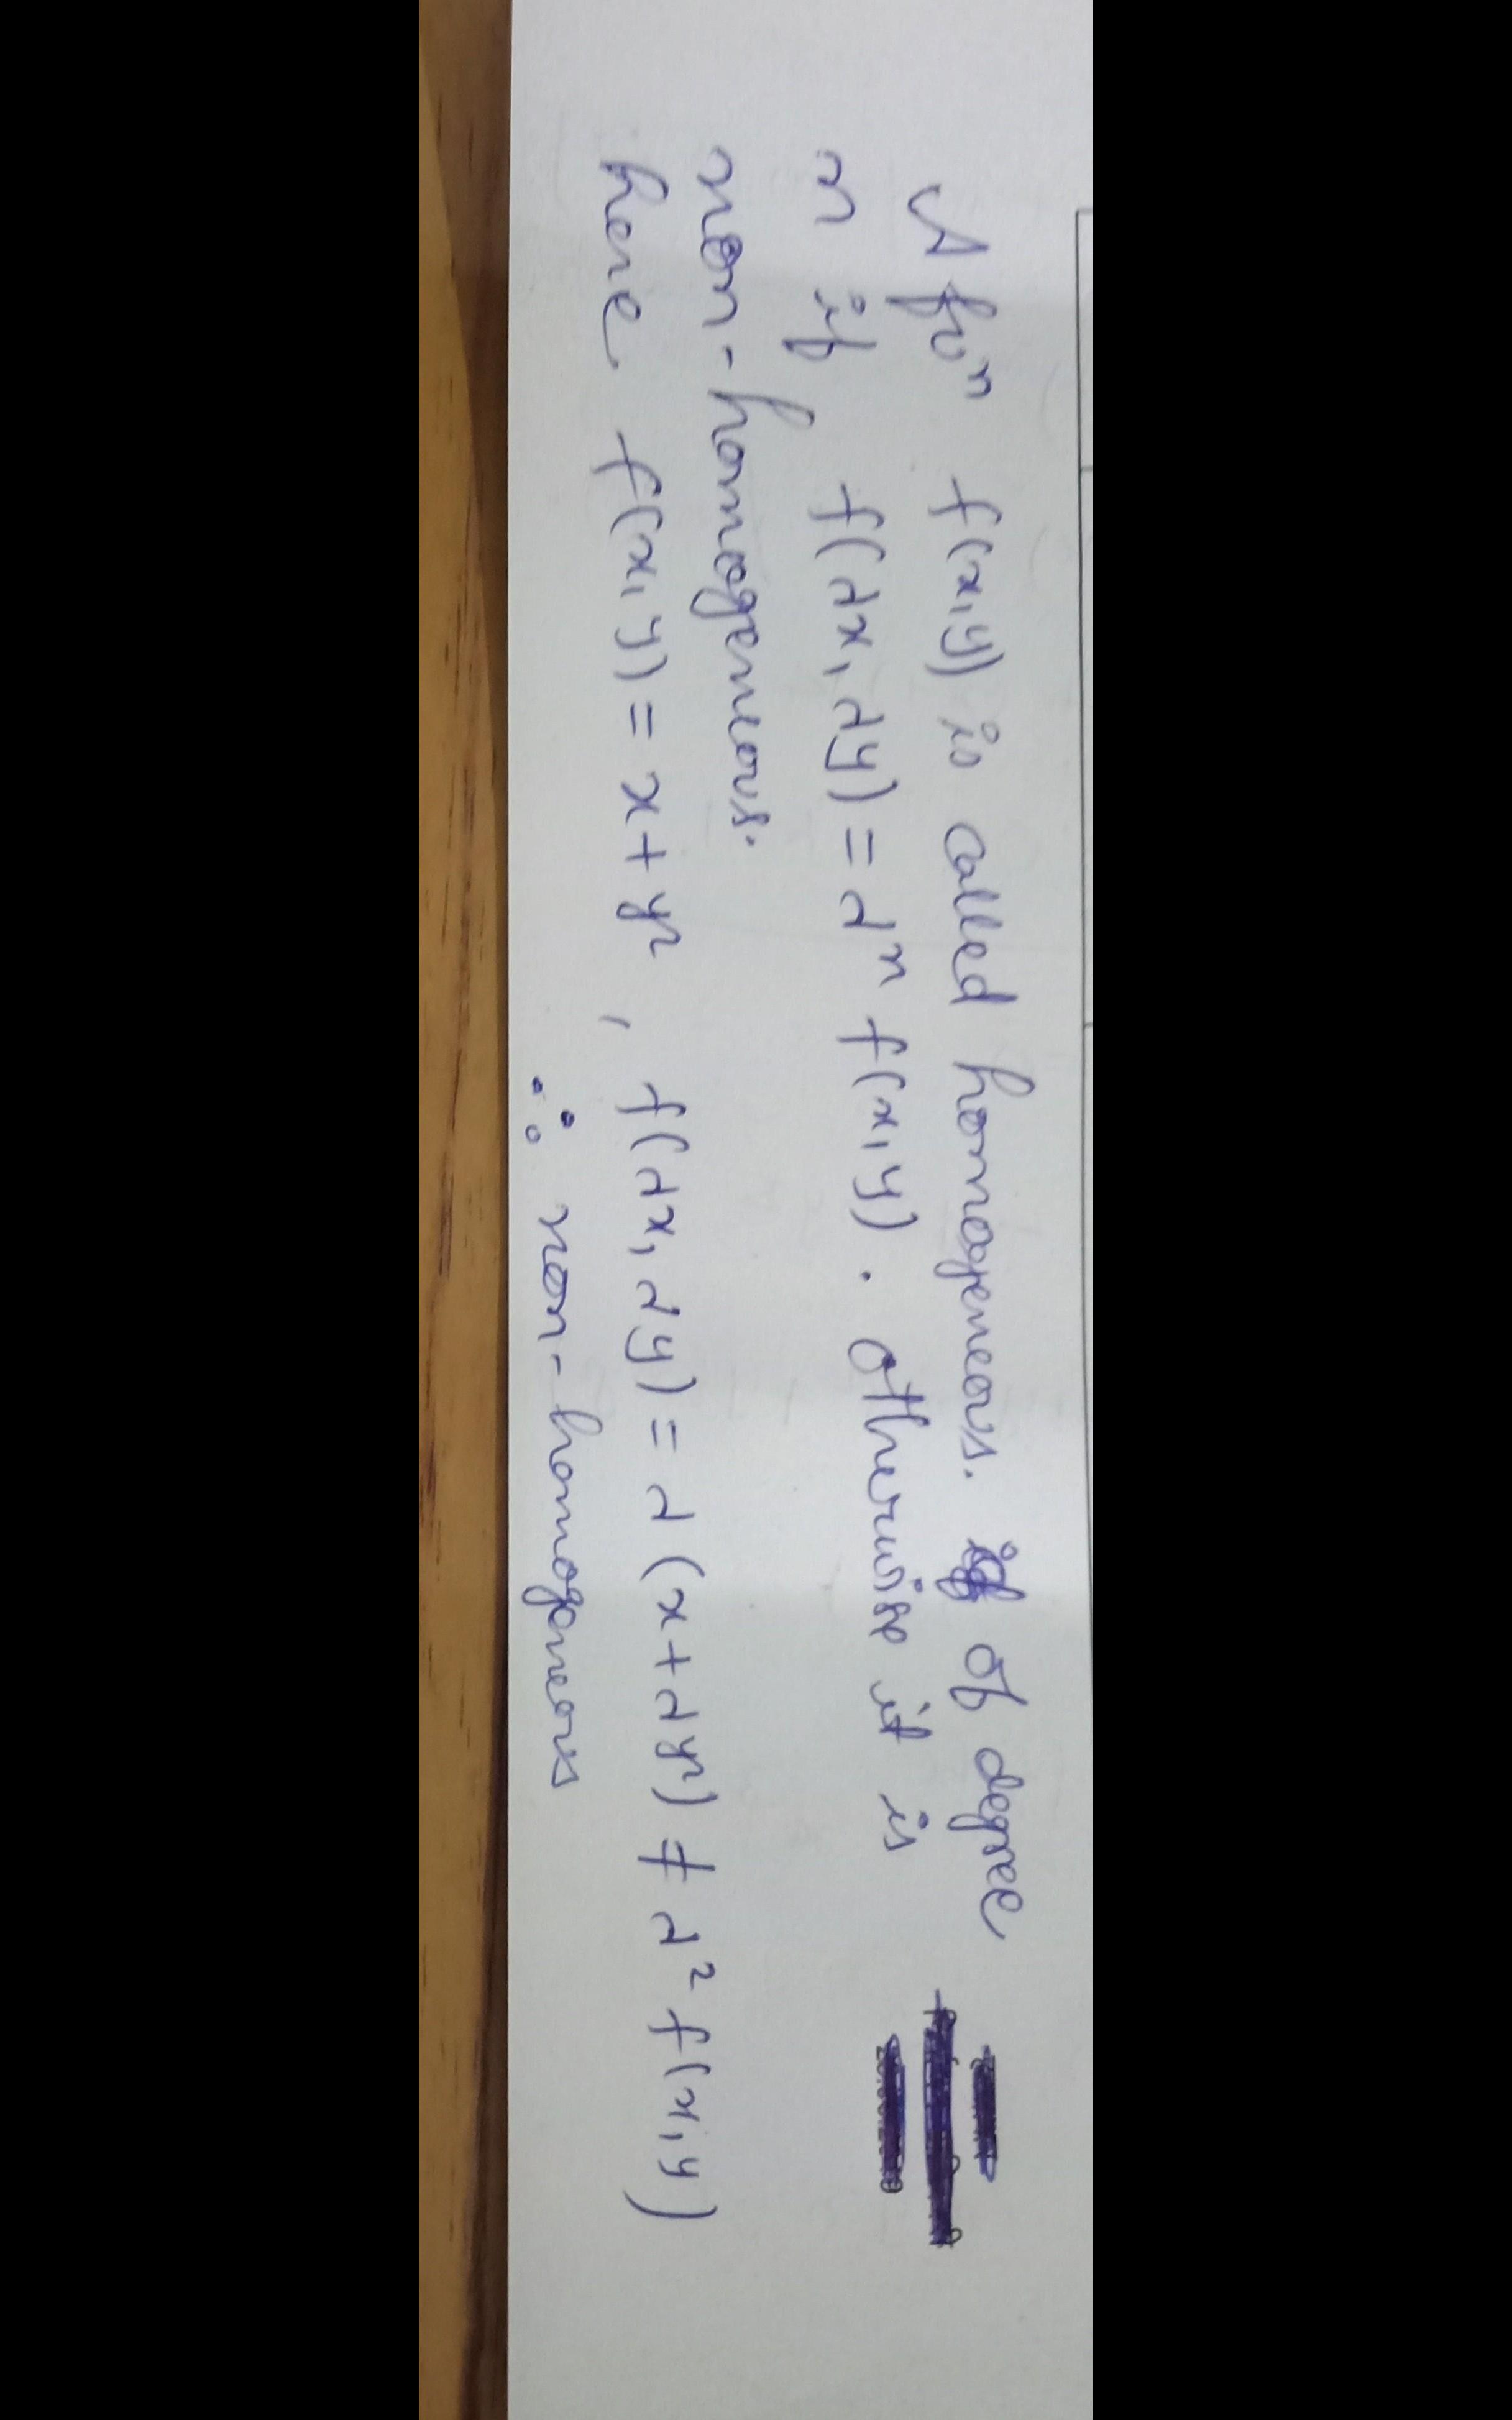 A fuⁿ f(x,y) is called homogeneous. of degree
n if f(λx, λy) = λⁿ f(x,y). Otherwise it is
non-homogeneous.
here f(x,y) = x+y², f(λx, λy) = λ(x+λy²) ≠ λ² f(x,y)
∴ non-homogeneous